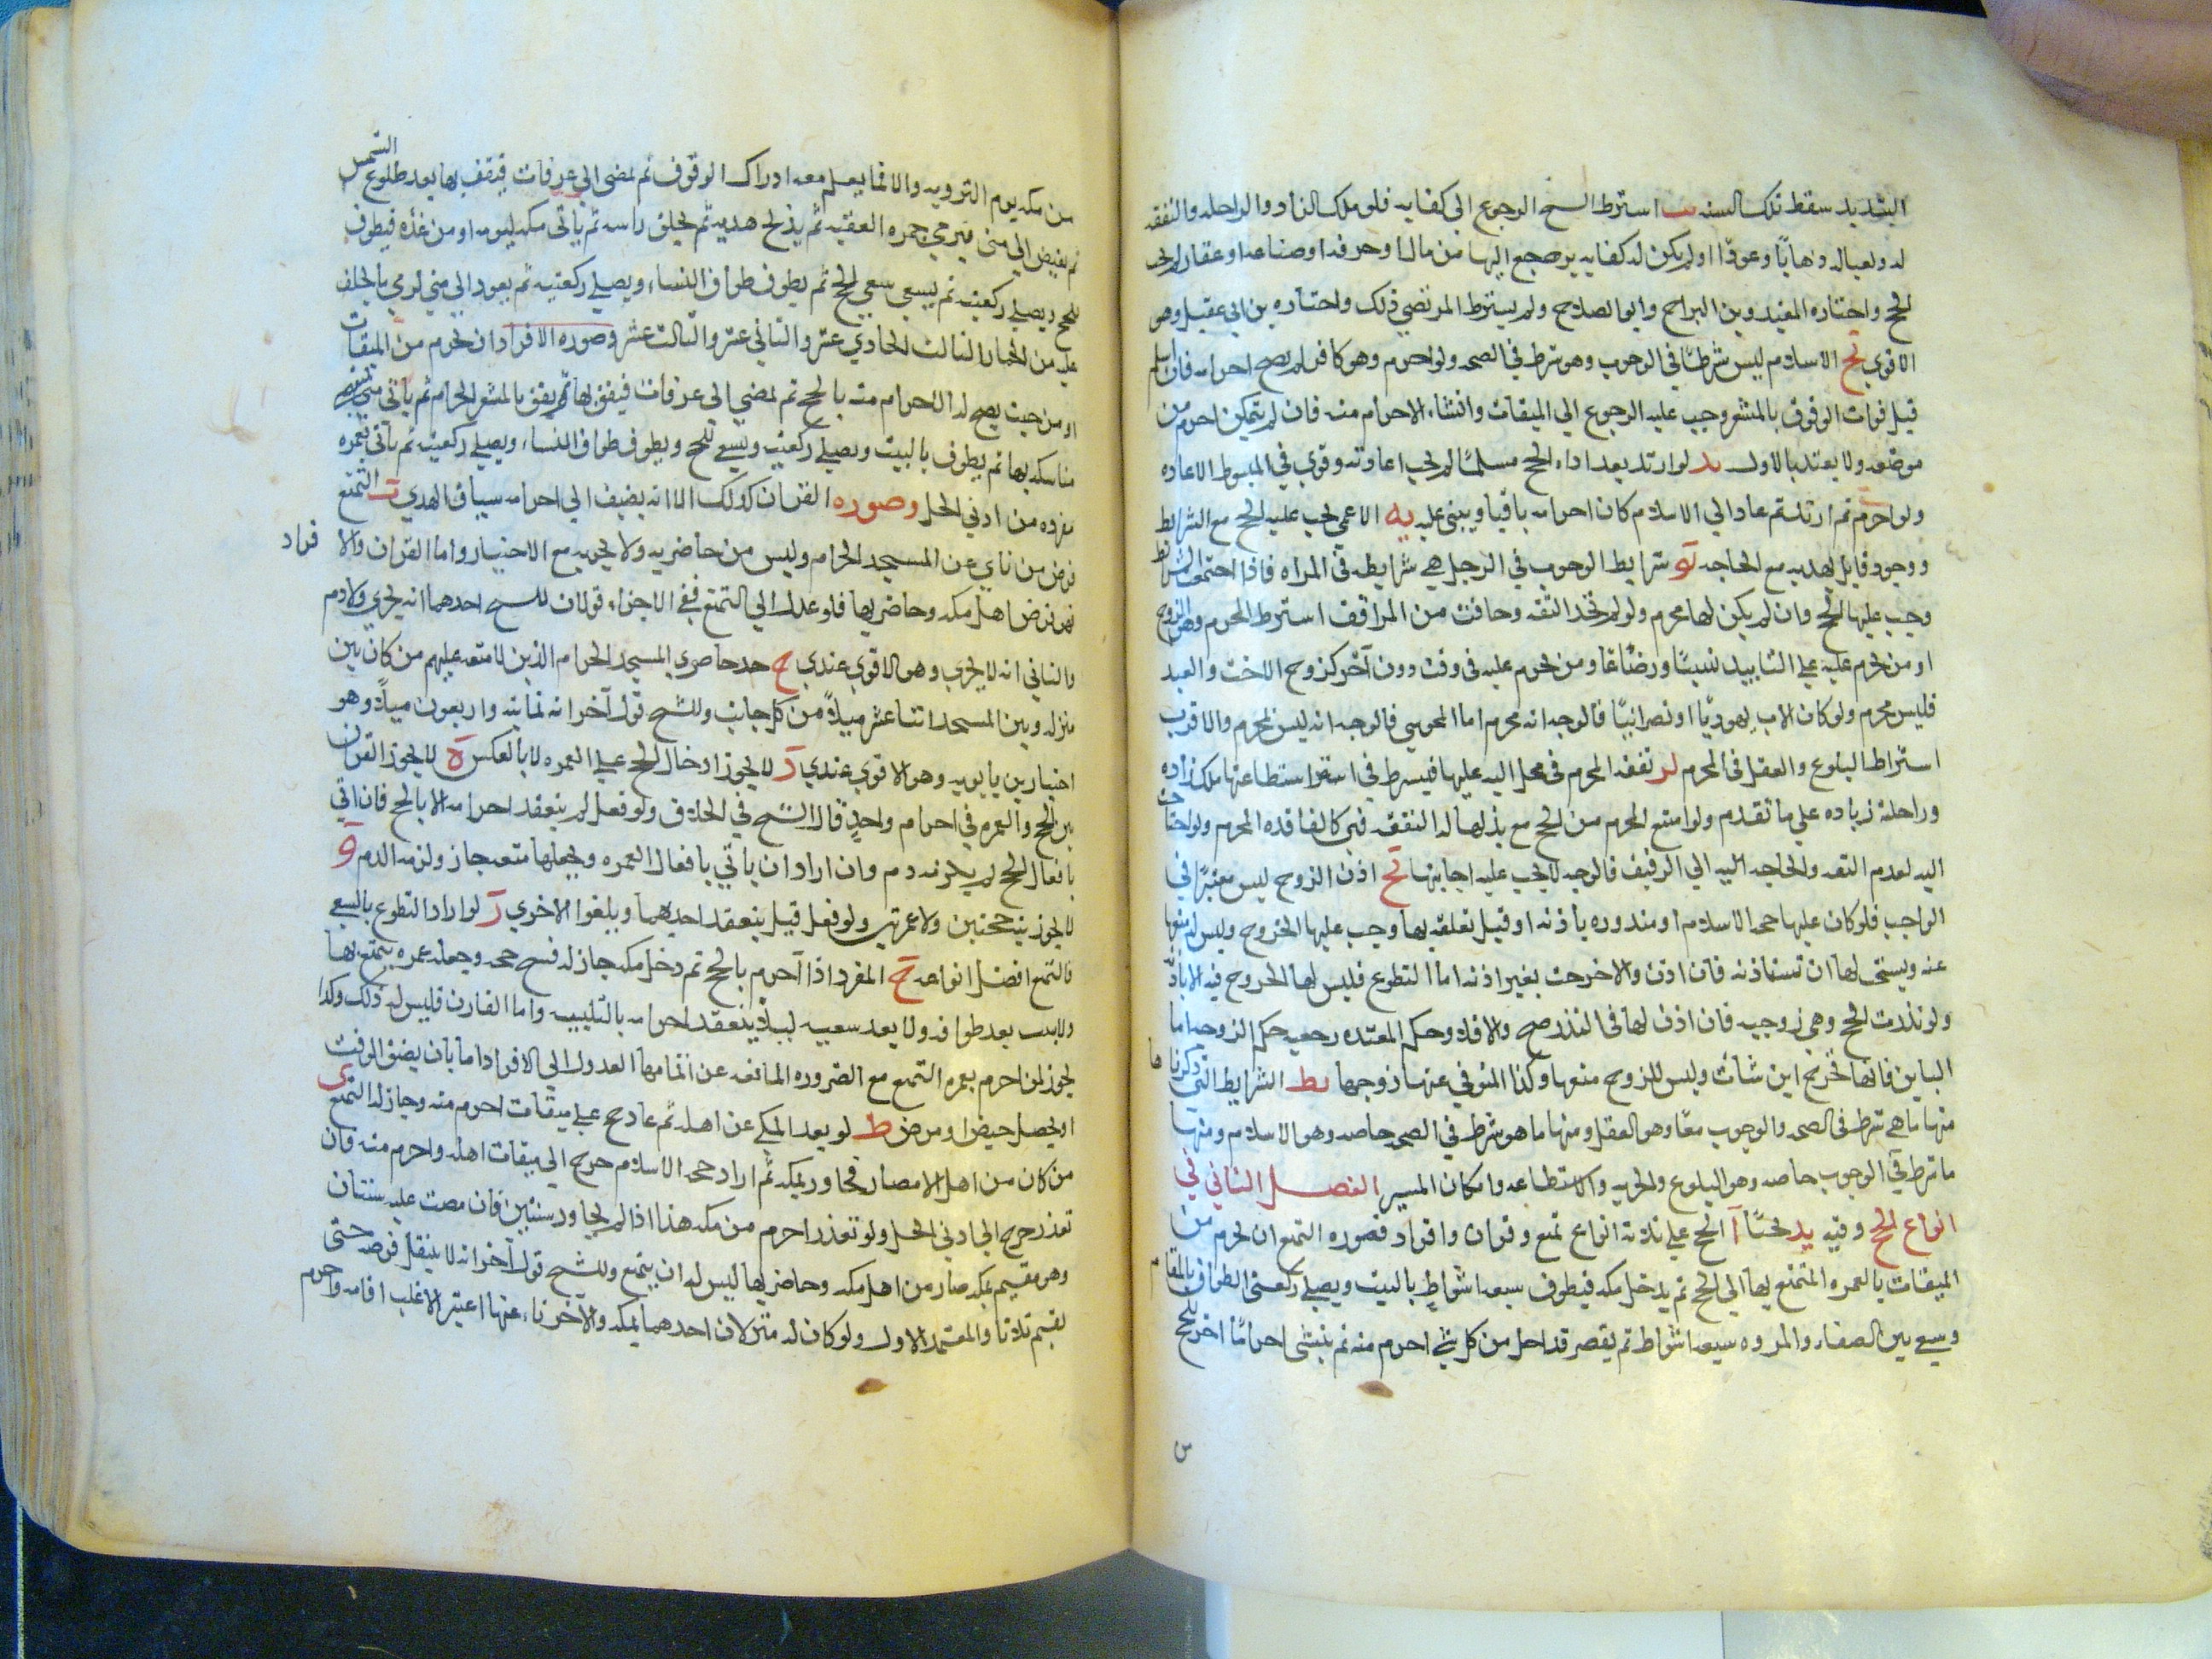 الشديد سقط تلك السنه يب اشترط الشيخ الرجوع الي كفايه فلو ملك الزاد والراحله والنفقه
له ولعياله ذهابًا وعودًا ولم يكن له كفايه يرجع اليها من مال او حرفه او صناعه او عقار لم يجب
الحج واختاره المفيد وبن البراج وابو الصلاح ولم يشترط المرتضي ذلك واختاره بن ابي عقيل وهو
الاقوي يج الاسلام ليس شرطًا في الوجوب وهو شرط في الصحه ولو احرم وهو كافر لم يصح احرامه فان اسلم
قبل فوات الوقوف بالمشعر وجب عليه الرجوع الي الميقات وانشاء الاحرام منه فان لم يتمكن احرم من
موضعه ولا يعتد بالاول يد لو ارتد بعد اداء الحج مسلمًا لم يجب اعادته وقوي في المبسوط الاعاده
ولو احرم ثم ارتد ثم عاد الي الاسلام كان احرامه باقيا ويبني عليه يه الاعمي يجب عليه الحج مع الشرايط
ووجود قايد يهديه مع الحاجه يو شرايط الوجوب في الرجل هي شرايطه في المراه فاذا اجتمعت الشرايط
وجب عليها الحج وان لم يكن لها محرم ولو لم تجد الثقه وخافت من المرافق اشترط المحرم وهو الزوج
او من يحرم عليه علي التابيد نسبًا ورضاعًا ومن يحرم عليه في وقت دون آخر كزوج الاخت والعبد
فليس محرم ولو كان الاب يهوديًا او نصرانيًا فالوجه انه محرم اما المجوسي فالوجه انه ليس بمحرم والاقرب
اشتراط البلوغ والعقل في المحرم يز نفقه المحرم في محل اليه عليها فيشرط في استطاعتها ملك زاده
وراحلته زياده علي ما تقدم ولو امتنع المحرم من الحج مع بذلها له النفقه فهي كالفاقده المحرم ولو احتاجت
اليه لعدم الثقه والحاجه اليه الي الرفيق فالوجه لا يجب عليه اجابتها يح اذن الزوج ليس معتبرًا في
الواجب فلو كان عليها حجه الاسلام او منذوره باذنه او قبل تعلقه بها وجب عليها الخروج وليس له منعها
عنه ويستحب لها ان تستاذنه فان اذن والا خرجت بغير اذنه اما التطوع فليس لها الخروج فيه الا باذنه
ولو نذرت الحج وهي زوجيه فان اذن لها في النذر صح والا فلا وحكم المعتده رجعيه حكم الزوجه اما
الباين فانها تخرج اين شات وليس للزوج منعها وكذا المتوفي عنها زوجها يط الشرايط التي ذكرناها
منها ما هي شرط في الصحه والوجوب معًا وهو العقل ومنها ما هو شرط في الصحه خاصه وهو الاسلام ومنها
ما شرط في الوجوب خاصه وهو البلوغ والحريه والاستطاعه وامكان المسير الفصل الثاني في
انواع الحج وفيه يد بحثًا آ الحج علي ثلاثه انواع تمتع وقران وافراد فصوره التمتع ان يحرم من
الميقات بالعمره المتمتع بها الي الحج ثم يدخل مكه فيطوف سبعه اشواط بالبيت ويصلي ركعتي الطواف بالمقام
وسعي بين الصفا والمروه سبعه اشواط ثم يقصر قد احل من كل شي احرم منه ثم ينشي احرامًا اخر للحج
من مكه يوم الترويه والا فما يعلم معه ادراك الوقوف ثم يمضي الي عرفات فيقف بها بعد طلوع الشمس
ثم يفيض الي مني فيرمي جمره العقبه ثم يذبح هديه ثم يحلق راسه ثم ياتي مكه ليومه او من غده فيطوف
للحج ويصلي ركعتيه ثم يسعي سعي الحج ثم يطوف طواف النساء ويصلي ركعتيه ثم يعود الي مني لرمي ما تخلف
عليه من الجمار الثالث الحادي عشر والثاني عشر والثالث عشر وصوره الافراد ان يحرم من الميقات
او من حيث يصح له الاحرام منه بالحج ثم يمضي الي عرفات فيقف بها ثم يقف بالمشعر الحرام ثم ياتي مني فيقضي
مناسكه بها ثم يطوف بالبيت ويصلي ركعتيه ويسعي للحج ويطوف طواف النساء ويصلي ركعتيه ثم ياتي بعمره
مفرده من ادني الحل وصوره القران كذلك الا انه يضيف الي احرامه سياق الهدي ب التمتع
فرض من ناي عن المسجد الحرام وليس من حاضريه ولا يجزيه مع الاختيار واما القران والافراد
فهو فرض اهل مكه وحاضريها فلو عدل الي التمتع ففي الاجزاء قولان للشيخ احدهما انه يجزي ولا دم
والثاني انه لا يجزي وهو الاقوي عندي ج حد حاضري المسجد الحرام الذين لا متعه عليهم من كان بين
منزله وبين المسجد اثنا عشر ميلًا من كل جانب وللشيخ قول آخر انه ثمانيه واربعون ميلًا وهو
اختيار بن بابويه وهو الاقوي عندي د لا يجوز ادخال الحج علي العمره ولا بالعكس ه لا يجوز القران
بين الحج والعمره في احرام واحدٍ قال الشيخ في الخلاف ولو فعل لم ينعقد احرامه الا بالحج فان اتي
بافعال الحج لم يلزمه دم وان اراد ان ياتي بافعال العمره ويجعلها متعه جاز ولزمه الدم و
لا يجوز نية حجتين ولا عمرتين ولو فعل قيل ينعقد احديهما ويلغوا الاخري ز لو اراد التطوع بالسعي
فالتمتع افضل انواعه ح المفرد اذا آحرم بالحج ثم دخل مكه جاز له فسخ حجه وجعله عمره يتمتع بها
ولا يلب بعد طوافه ولا بعد سعيه ليلا ينعقد احرامه بالتلبيه واما القارن فليس له ذلك وكذا
يجوز لمن احرم بعمره التمتع مع الضروره المانعه عن اتمامها العدول الي الافراد اما بان يضيق الوقت
او يحصل حيض او مرض ط لو بعد المكي عن اهله ثم عاد حج علي ميقات احرم منه وجاز له التمتع ي
من كان من اهل الامصار فجاور بمكه ثم اراد حجه الاسلام خرج الي ميقات اهله واحرم منه فان
تعذر خرج الي ادني الحل ولو تعذر احرم من مكه هذا اذا لم يجاور سنتين فان مضت عليه سنتان
وهو مقيم بمكه صار من اهل مكه وحاضريها ليس له ان يتمتع وللشيخ قول آخر انه لا ينتقل فرضه حتي
يقيم ثلاثا والمعتمد الاول ولو كان له منزلان احدهما بمكه والاخر ناء عنها اعتبر الاغلب اقامه واحرم